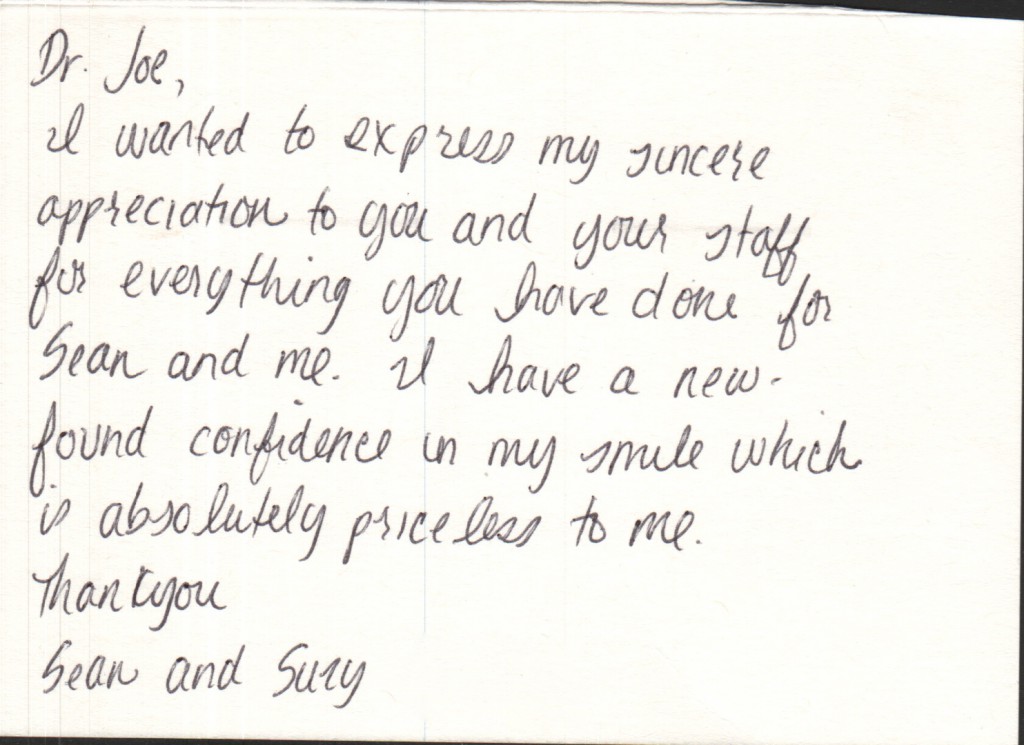 Dr. Joe,
I wanted to express my sincere
appreciation to you and your staff
for everything you have done for
Sean and me. I have a new-
found confidence in my smile which
is absolutely priceless to me.
Thankyou
Sean and Suzy